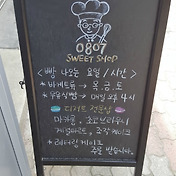 0807
SWEET SHOP
< 빵 나오는 요일 / 시간 >
* 바게트류 → 목.금.토
* 우유식빵 → 매일 오후 4시
디저트 전문샵
마카롱, 초코브라우니
계절타르트, 조각케이크
* 레터링케이크
주문 받습니다.